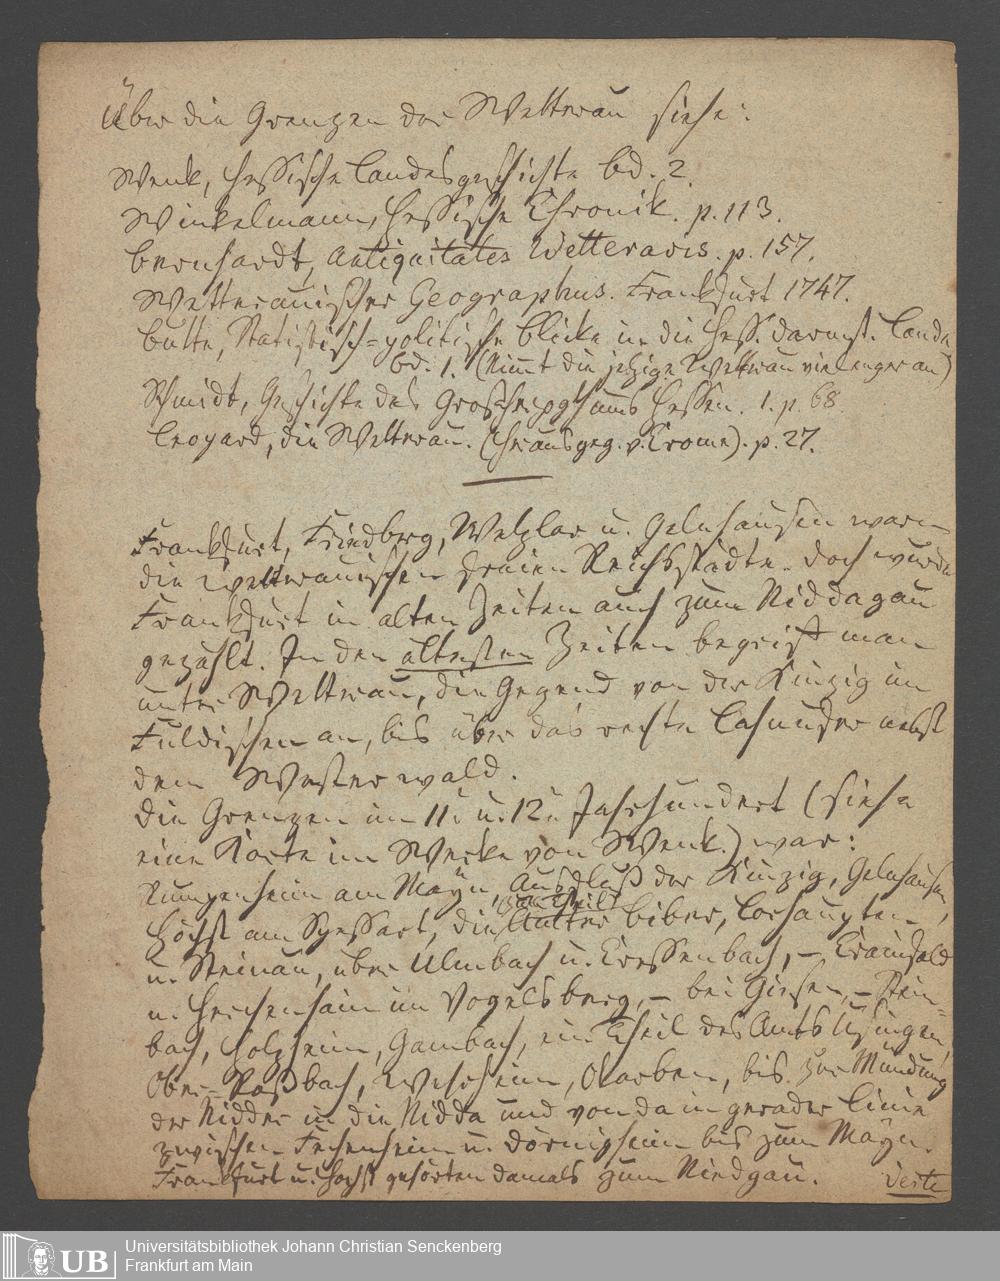 Über die Grenzen der Wetterau siehe:
Wenk, Hessische Landesgeschichte bd. 2.
Winkelmann, Hessische Chronik. p. 113.
Bernhardt, Antiquitates Wetteravis. p. 157.
Wetterauischer Geographus. Frankfurt 1747.
Butte, Statistisch-politische Blicke in die Hess. darmst. Lande
bd. 1. (Nimt die jetzige Wetterau viel enger an)
Schmidt, Geschichte des Grosherzogthums Hessen. 1. p. 68.
Leopard, die Wetterau. (herausgeg. v. Crome). p. 27.
Frankfurt, Friedberg, Wetzlar u. Gelnhausen waren
die wetterauischen freien Reichsstädte. doch wurde
Frankfurt in alten Zeiten auch zum Niddagau
gezählt. In den altesten Zeiten begriff man
unter Wetterau, die Gegend von der Kinzig im
Fuldischen an, bis über das rechte Lahnufer nebst
dem Westerwald.
die Grenzen im 11. u. 12. Jahrhundert (siehe
eine Karte im Werke von Wenk.) war:
Rumpenheim am Mayn, Ausfluß der Kinzig, Gelnhausen,
zum theil
Höchst am Spessart, die Biber, Lorhaupten
u. Steinau, über Ulmbach u. Cressenbach, – Crainfeld
u. Herchenhain im Vogelsberg, – bei Giesen, – Stein-
bach, Holzheim, Gambach, ein Theil des Amts Usingen,
Ober-Rosbach, Okarben, bis zur Mündung
der Nidder in die Nidda und von da in gerader Linie
zwischen Fechenheim u. Dörnigheim bis zum Mayn.
Frankfurt u. Hochst gehörten damals zum Niedgau.
verte
UB
Universitätsbibliothek Johann Christian Senckenberg
Frankfurt am Main